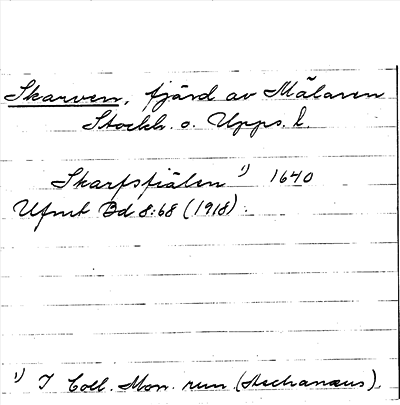 Skarven, fjärd av Mälaren
Stockh. o. Upps. l.
Skarfsfiälen ¹) 1640
Ufmt Bd 8:68 (1918).
¹) I Coll. Mon. run. (Stechanæus).